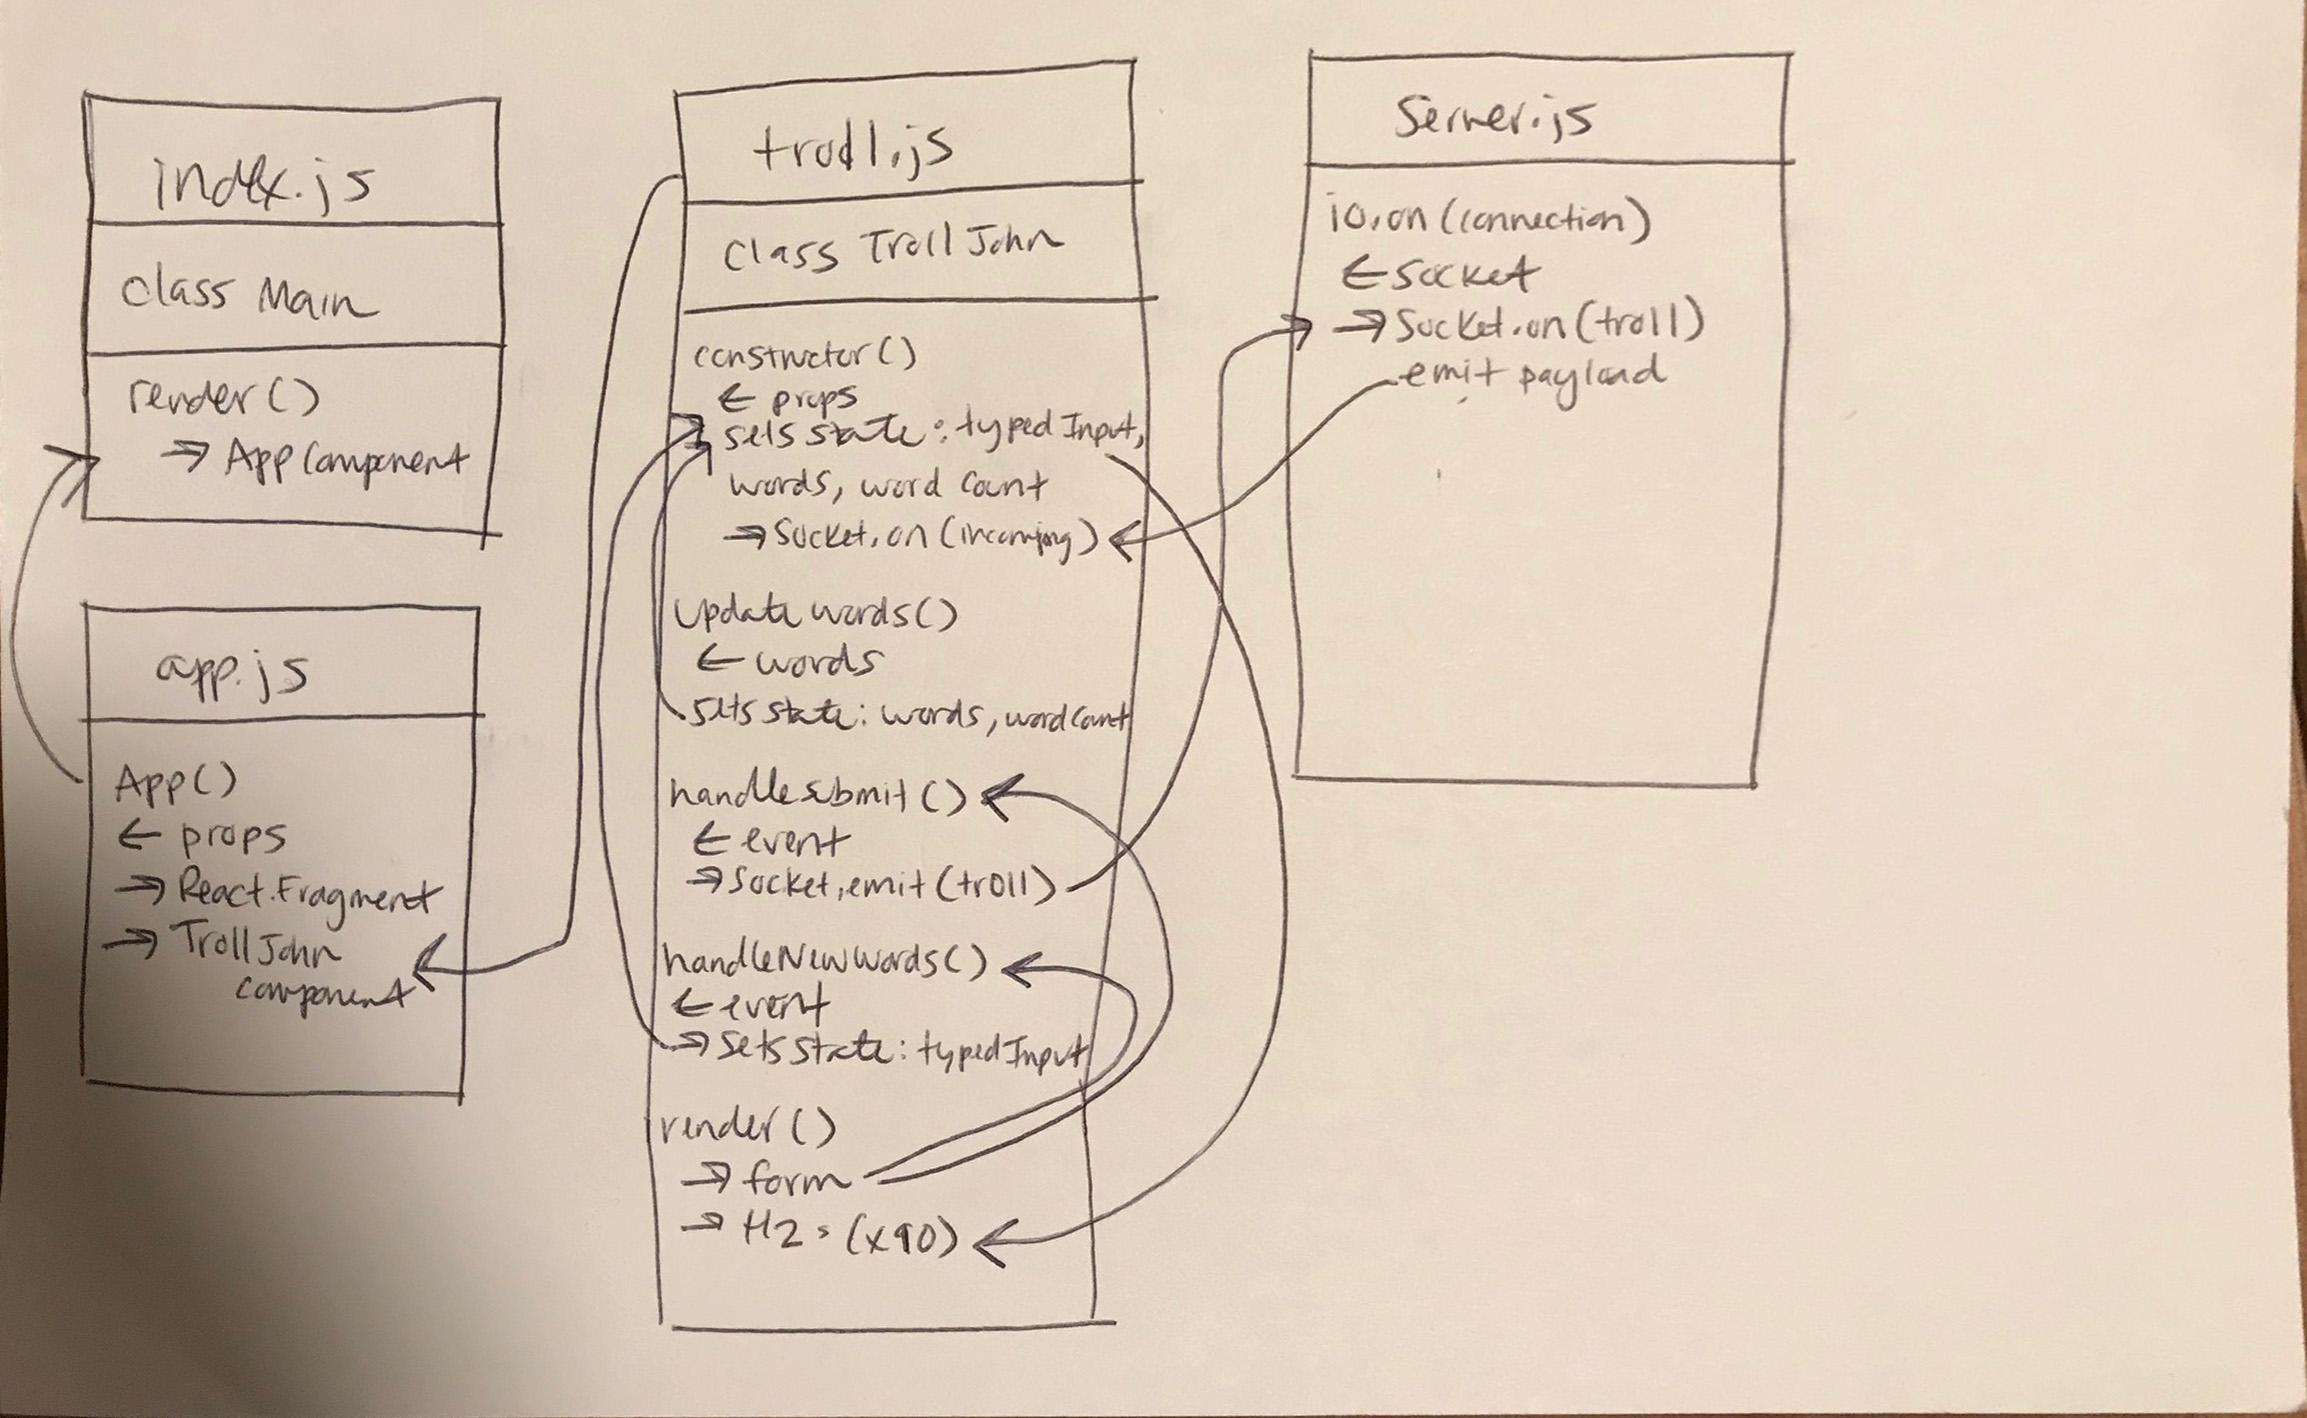 index.js
class Main
render()
→ App Component
app.js
App()
← props
→ React.Fragment
→ TrollJohn
component
troll.js
class TrollJohn
constructor()
← props
sets state: typedInput,
words, word count
→ Socket.on(incoming)
updatewords()
← words
sets state: words, wordcount
handlesubmit()
← event
→ Socket.emit(troll)
handleNewwords()
← event
→ sets state: typedInput
render()
→ form
→ H2: (x90)
Server.js
io.on(connection)
← socket
→ Socket.on(troll)
emit payload